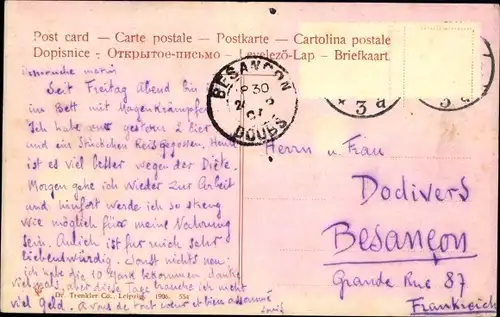 Post card — Carte postale — Postkarte — Cartolina postale
Dopisnice – Открытое-письмо – Levelező-Lap – Briefkaart
BESANÇON
DOUBS
8 30
Dimanche matin
Seit Freitag Abend bin
im Bett mit Magenkrämpfen
Ich habe nur gestern 2 Eier
und ein Stückchen Reis gegossen. Heute
ist es viel besser wegen der Diète.
Morgen gehe ich wieder zur Arbeit
und hinfort werde ich so streng
wie möglich für meine Nahrung
sein. ist für mich sehr
liebenswürdig. Sonst nichts neu:
ich habe die 10 Mark bekommen danke
viel mals, aber diese Tage brauche ich nicht
viel Geld. A vous de tout cœur et bien
Louis
Herrn u. Frau
Dodivers
Besançon
Grande Rue 87
Frankreich
* 3 a
3 a
Dr. Trenkler Co., Leipzig. 1906. 554